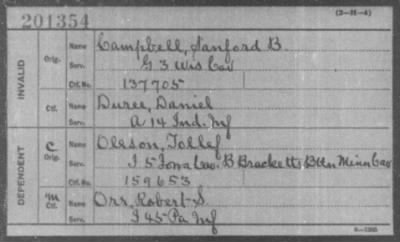 201354 (3-H-4)
INVALID
Orig. Name Campbell, Sanford B.
Serv. G 3 Wis Cav
Ctf. No. 137705
Ctf. Name Duree, Daniel
Serv. A 14 Ind. Inf
DEPENDENT
C Orig. Name Oleson, Tollef
Serv. I 5 Iowa Cav. B Bracketts Btln Minn Cav
Ctf. No. 159653
M Ctf. Name Orr, Robert S.
Serv. I 45 Pa Inf